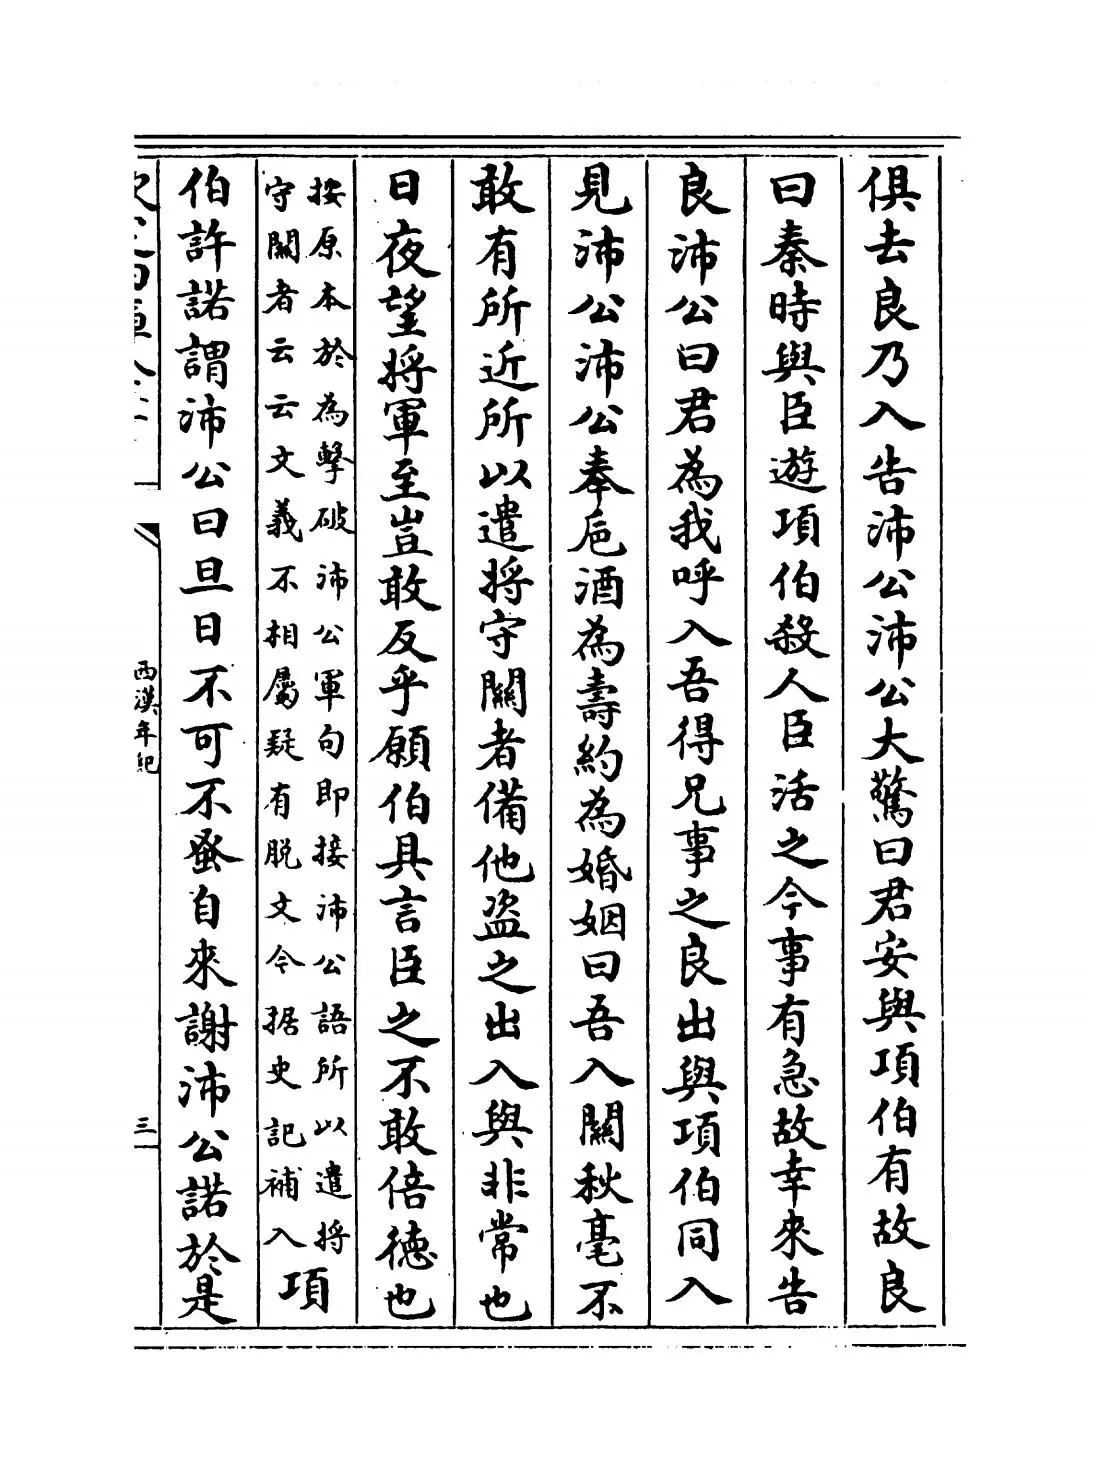 俱去良乃入告沛公沛公大驚曰君安與項伯有故良
曰秦時與臣遊項伯殺人臣活之今事有急故幸來告
良沛公曰君為我呼入吾得兄事之良出與項伯同入
見沛公沛公奉巵酒為壽約為婚姻曰吾入關秋毫不
敢有所近所以遣將守關者備他盗之出入與非常也
日夜望將軍至豈敢反乎願伯具言臣之不敢倍德也
按原本於為擊破沛公軍句即接沛公語所以遣將
守關者云云文義不相屬疑有脱文今据史記補入
項
伯許諾謂沛公曰旦日不可不蚤自來謝沛公諾於是
西漢年紀
三